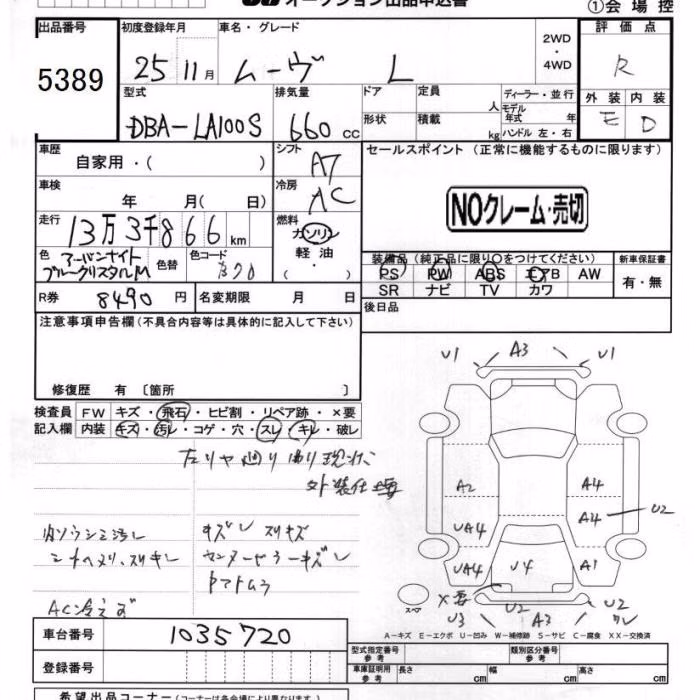 オークション出品申込書
①会場控
出品番号 初度登録年月 車名・グレード 2WD・4WD 評価点
5389 25 11月 ムーヴ L R
型式 排気量 ドア 定員 人 ディーラー・並行 外装 内装
DBA-LA100S 660cc 形状 積載 kg モデル年式 年 ハンドル 左・右 E D
車歴 自家用・( ) シフト AT セールスポイント (正常に機能するものに限ります)
車検 年 月( 日) 冷房 AC NOクレーム・売切
走行 13万3千866km 燃料 ガソリン
軽油
( ・ )
色 アーバンナイトブルークリスタルM 色替 色コード B70 装備品 (純正品に限り○をつけてください) 新車保証書
PS PW ABS エアB AW 有・無
R券 8490円 名変期限 月 日 SR ナビ TV カワ
注意事項申告欄(不具合内容等は具体的に記入して下さい) 後日品
修復歴 有 〔箇所 〕
検査員 FW キズ・飛石・ヒビ割・リペア跡・×要
記入欄 内装 キズ・汚レ・コゲ・穴・スレ・キレ・破レ
U1 A3 U1
A2 A4
A4 U2
UA4
UA4 U4 A1
スペア ×要 U2 U2
U3 A3
キズレ スリキズ
AC冷えず
A-キズ E-エクボ U-凹み W-補修跡 S-サビ C-腐食 XX-交換済
車台番号 1035720 型式指定番号 参考 類別区分番号 参考
登録番号 車庫証明用 参考 長さ cm 幅 cm 高さ cm
希望出品コーナー (コーナーは各会場により異なります。)